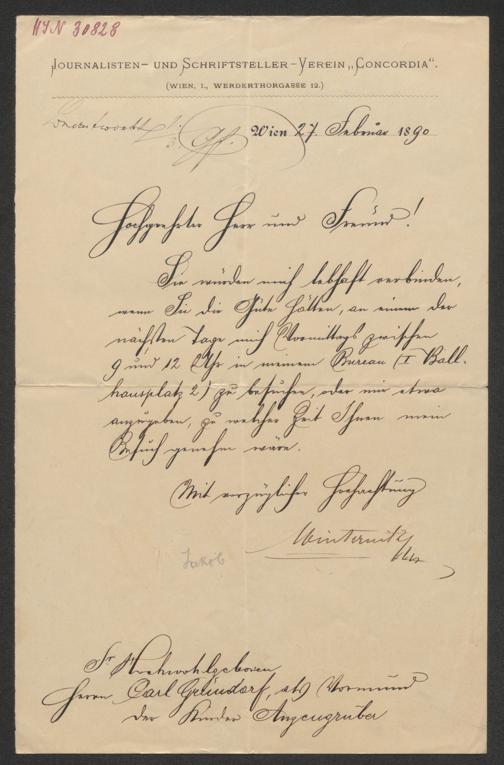 HIN 30828
JOURNALISTEN- UND SCHRIFTSTELLER-VEREIN „CONCORDIA“.
(WIEN, I., WERDERTHORGASSE 12.)
Wien 27. Februar 1890
Hochgeehrter Herr und Freund!
Sie würden mich lebhaft verbinden,
wenn Sie die Güte hätten, an einem der
nächsten Tage mich Vormittags zwischen
9 und 12 Uhr in meinem Bureau (I Ball-
hausplatz 2) zu besuchen, oder mir etwa
anzugeben, zu welcher Zeit Ihnen mein
Besuch genehm wäre.
Mit vorzüglicher Hochachtung
Winternitz
Jakob
Sr. Hochwohlgeboren
Herrn Carl Gründorf, als Vormund
der Kinder Anzengruber